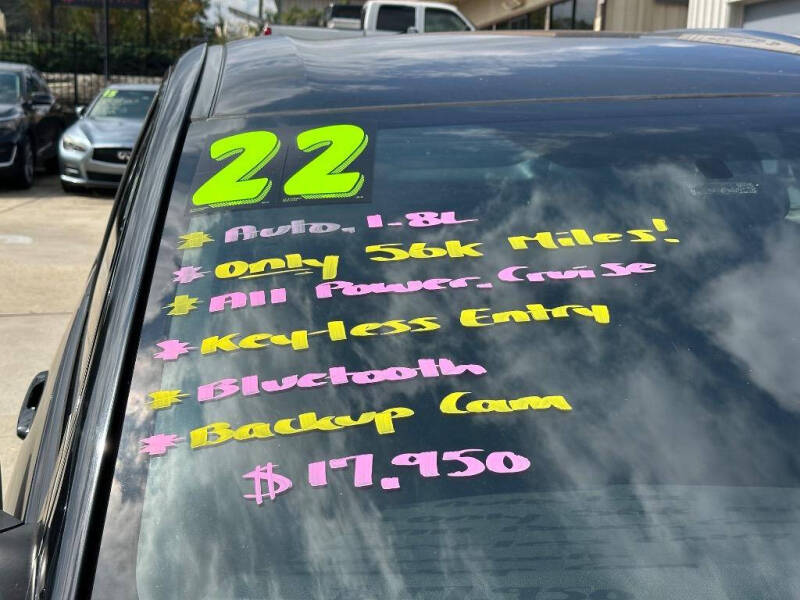 22
* Auto, 1.8L
* Only 56k Miles!
* All Power, Cruise
* Key-less Entry
* Bluetooth
* Backup Cam
$17,950